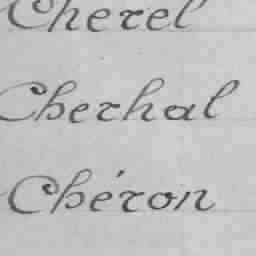 Cherel
Cherhal
Chéron